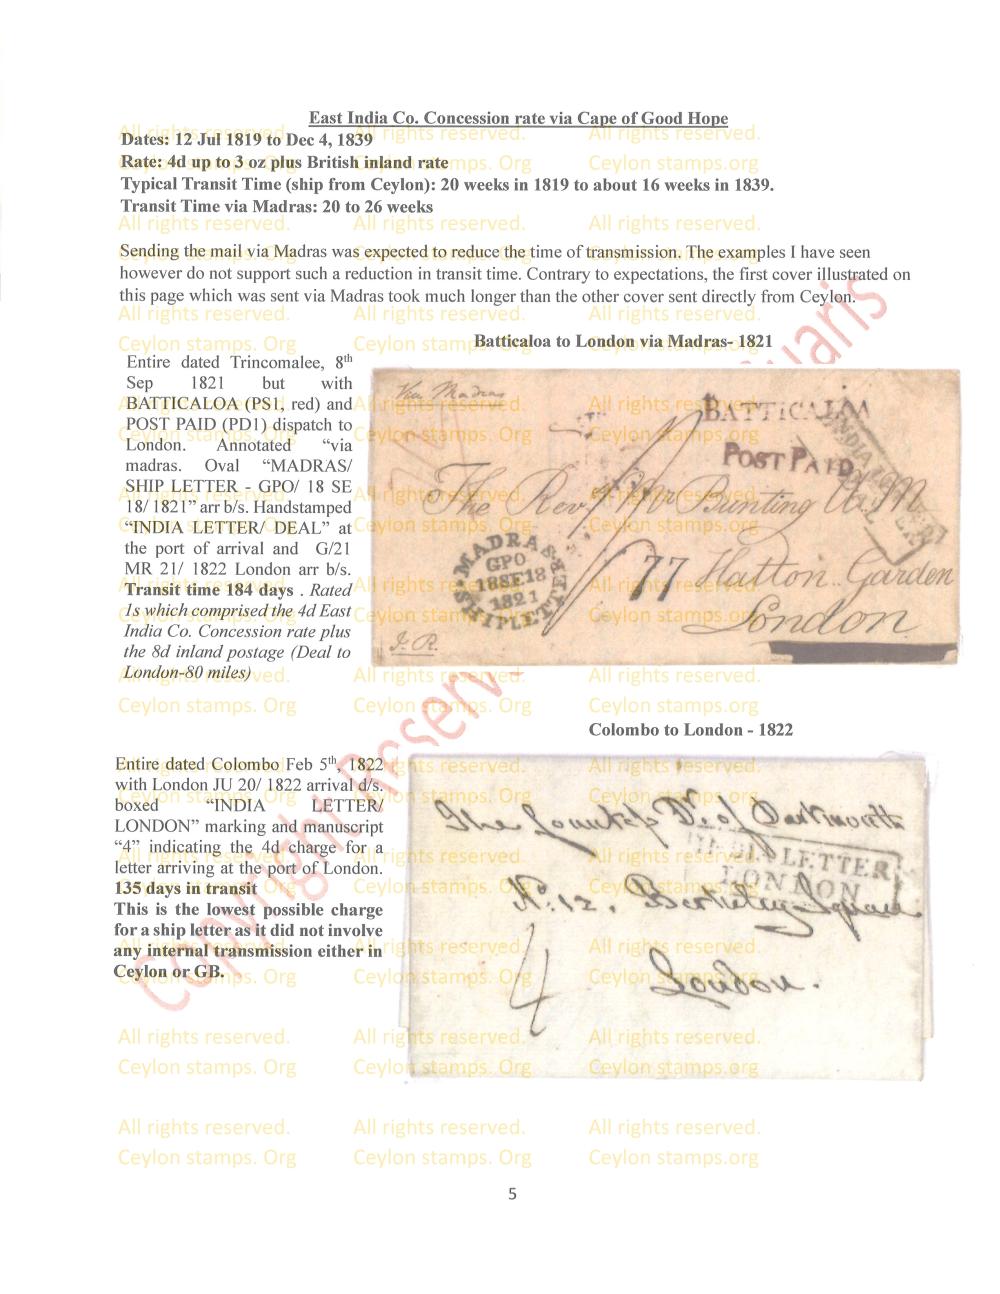 East India Co. Concession rate via Cape of Good Hope
Dates: 12 Jul 1819 to Dec 4, 1839
Rate: 4d up to 3 oz plus British inland rate
Typical Transit Time (ship from Ceylon): 20 weeks in 1819 to about 16 weeks in 1839.
Transit Time via Madras: 20 to 26 weeks
Sending the mail via Madras was expected to reduce the time of transmission. The examples I have seen
however do not support such a reduction in transit time. Contrary to expectations, the first cover illustrated on
this page which was sent via Madras took much longer than the other cover sent directly from Ceylon.
Batticaloa to London via Madras- 1821
Entire dated Trincomalee, 8th
Sep 1821 but with
BATTICALOA (PS1, red) and
POST PAID (PD1) dispatch to
London. Annotated “via
madras. Oval “MADRAS/
SHIP LETTER - GPO/ 18 SE
18/ 1821” arr b/s. Handstamped
“INDIA LETTER/ DEAL” at
the port of arrival and G/21
MR 21/ 1822 London arr b/s.
Transit time 184 days . Rated
1s which comprised the 4d East
India Co. Concession rate plus
the 8d inland postage (Deal to
London-80 miles)
Via Madras
BATTICALOA
POST PAID
INDIA LETTER
DEAL
The Rev. Mr Bunting
77 Hatton Garden
London
MADRAS
GPO
18 SE 18
1821
SHIP LETTER
J. R.
Colombo to London - 1822
Entire dated Colombo Feb 5th, 1822
with London JU 20/ 1822 arrival d/s.
boxed “INDIA LETTER/
LONDON” marking and manuscript
“4” indicating the 4d charge for a
letter arriving at the port of London.
135 days in transit
This is the lowest possible charge
for a ship letter as it did not involve
any internal transmission either in
Ceylon or GB.
The Dr. of Dartmouth
INDIA LETTER
LONDON
No. 12. Berkeley Square
4
London.
Copyright Reserv
All rights reserved. All rights reserved. All rights reserved.
Ceylon stamps. Org Ceylon stamps. Org Ceylon stamps.org
All rights reserved. All rights reserved. All rights reserved.
Ceylon stamps. Org Ceylon stamps. Org Ceylon stamps.org
5